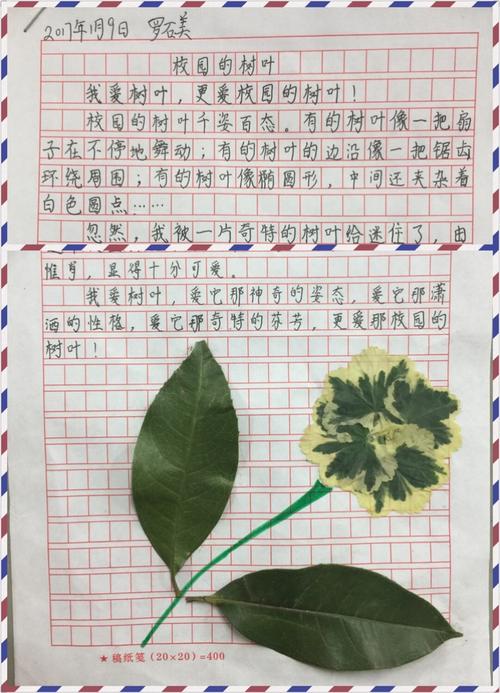 2017年1月9日 罗石美
校园的树叶
我爱树叶，更爱校园的树叶！
校园的树叶千姿百态。有的树叶像一把扇
子在不停地舞动；有的树叶的边沿像一把锯齿
环绕周围；有的树叶像椭圆形，中间还夹杂着
白色圆点……
忽然，我被一片奇特的树叶给迷住了，由
惟肖，显得十分可爱。
我爱树叶，爱它那神奇的姿态，爱它那潇
洒的性格，爱它那奇特的芬芳，更爱那校园的
树叶！
★稿纸笺（20×20）=400